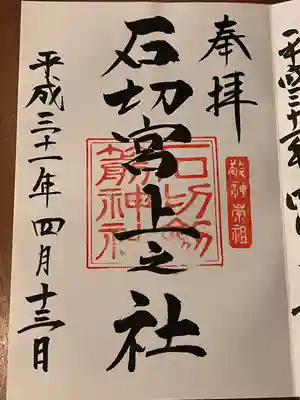 奉拝
敬神崇祖
石切宮上之社
石切劔箭神社
平成三十一年四月十三日